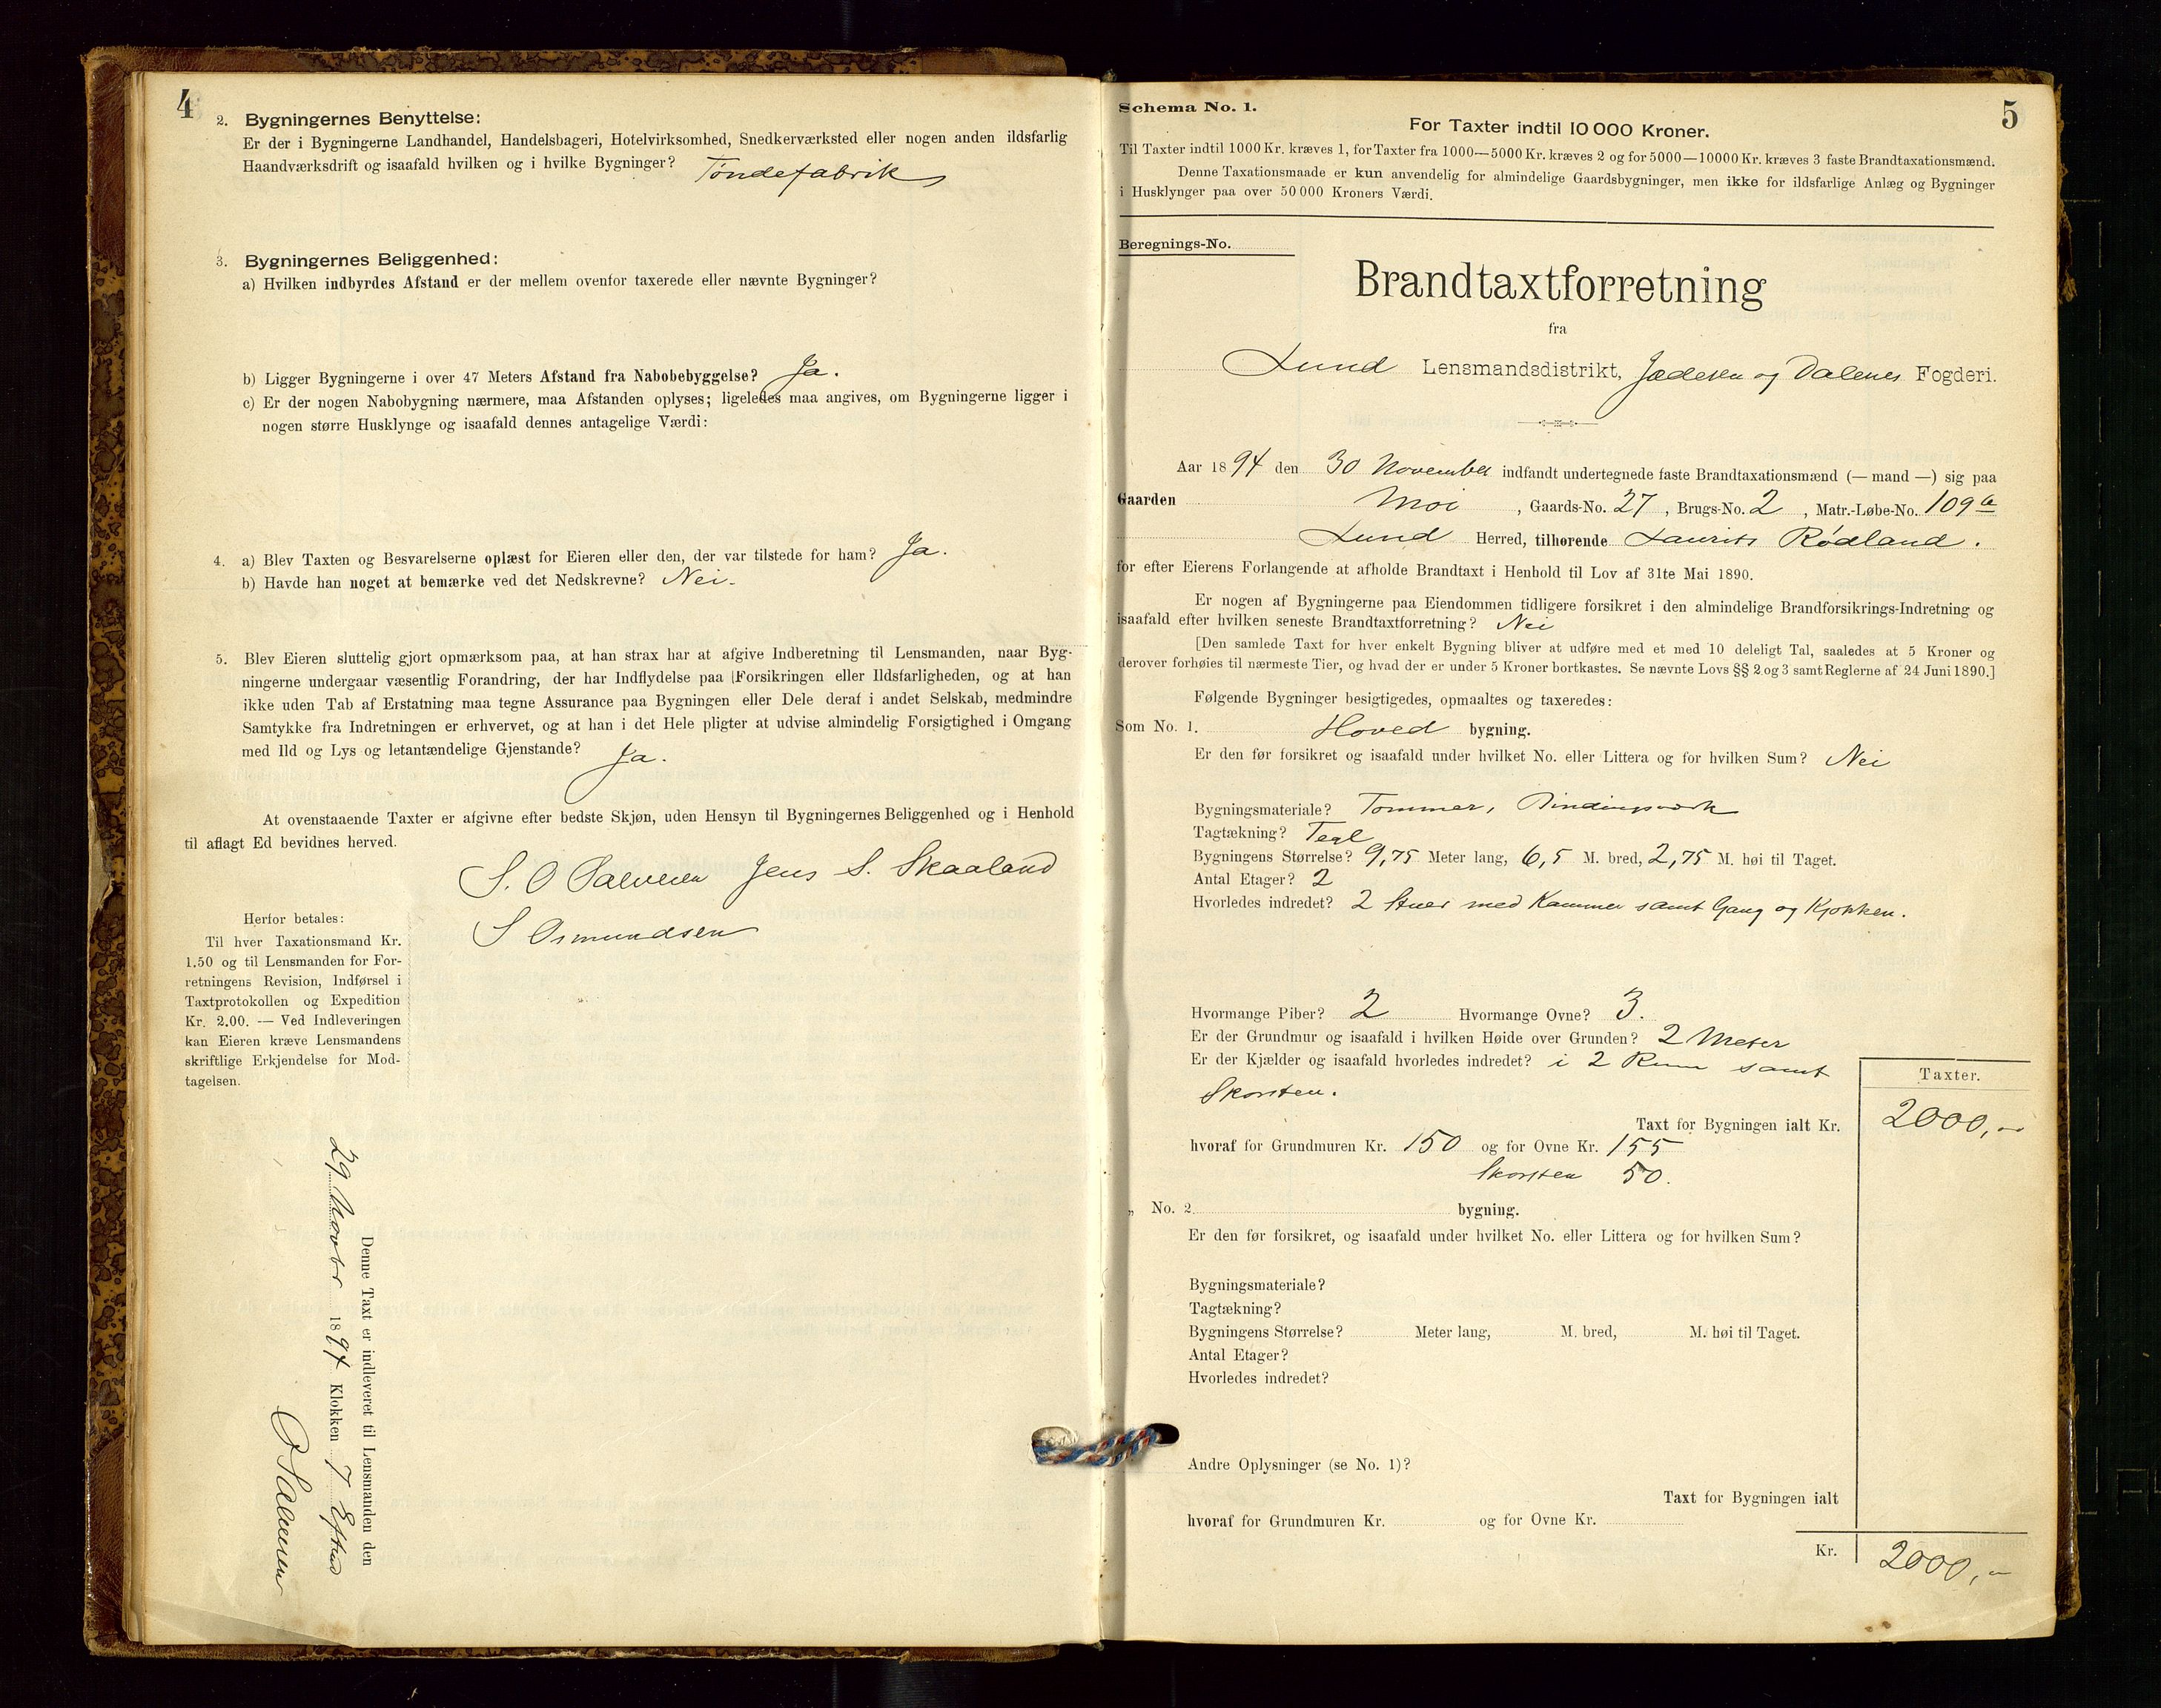 4
2. Bygningernes Benyttelse:
Er der i Bygningerne Landhandel, Handelsbageri, Hotelvirksomhed, Snedkerværksted eller nogen anden ildsfarlig
Haandværksdrift og isaafald hvilken og i hvilke Bygninger? Tøndefabrik
3. Bygningernes Beliggenhed:
a) Hvilken indbyrdes Afstand er der mellem ovenfor taxerede eller nævnte Bygninger?
b) Ligger Bygningerne i over 47 Meters Afstand fra Nabobebyggelse? Ja.
c) Er der nogen Nabobygning nærmere, maa Afstanden oplyses; ligeledes maa angives, om Bygningerne ligger i
nogen større Husklynge og isaafald dennes antagelige Værdi:
4. a) Blev Taxten og Besvarelserne oplæst for Eieren eller den, der var tilstede for ham? Ja.
b) Havde han noget at bemærke ved det Nedskrevne? Nei.
5. Blev Eieren sluttelig gjort opmærksom paa, at han strax har at afgive Indberetning til Lensmanden, naar Byg-
ningerne undergaar væsentlig Forandring, der har Indflydelse paa Forsikringen eller Ildsfarligheden, og at han
ikke uden Tab af Erstatning maa tegne Assurance paa Bygningen eller Dele deraf i andet Selskab, medmindre
Samtykke fra Indretningen er erhvervet, og at han i det Hele pligter at udvise almindelig Forsigtighed i Omgang
med Ild og Lys og letantændelige Gjenstande? Ja.
At ovenstaaende Taxter er afgivne efter bedste Skjøn, uden Hensyn til Bygningernes Beliggenhed og i Henhold
til aflagt Ed bevidnes herved.
S. O Salvesen Jens S. Skaaland
S Osmundsen
Herfor betales:
Til hver Taxationsmand Kr.
1.50 og til Lensmanden for For-
retningens Revision, Indførsel i
Taxtprotokollen og Expedition
Kr. 2.00. — Ved Indleveringen
kan Eieren kræve Lensmandens
skriftlige Erkjendelse for Mod-
tagelsen.
Denne Taxt er indleveret til Lensmanden den
29 Novbr 1894 Klokken 7 Eftmd
Schema No. 1.
5
For Taxter indtil 10 000 Kroner.
Til Taxter indtil 1000 Kr. kræves 1, for Taxter fra 1000—5000 Kr. kræves 2 og for 5000—10000 Kr. kræves 3 faste Brandtaxationsmænd.
Denne Taxationsmaade er kun anvendelig for almindelige Gaardsbygninger, men ikke for ildsfarlige Anlæg og Bygninger
i Husklynger paa over 50 000 Kroners Værdi.
Beregnings-No.
Brandtaxtforretning
fra
Lund Lensmandsdistrikt, Jæderen og Dalenes Fogderi.
Aar 1894 den 30 November indfandt undertegnede faste Brandtaxationsmænd (— mand —) sig paa
Gaarden Moi, Gaards-No. 27, Brugs-No. 2, Matr.-Løbe-No. 109
Lund Herred, tilhørende Laurits Rødland.
for efter Eierens Forlangende at afholde Brandtaxt i Henhold til Lov af 31te Mai 1890.
Er nogen af Bygningerne paa Eiendommen tidligere forsikret i den almindelige Brandforsikrings-Indretning og
isaafald efter hvilken seneste Brandtaxtforretning? Nei
[Den samlede Taxt for hver enkelt Bygning bliver at udføre med et med 10 deleligt Tal, saaledes at 5 Kroner og
derover forhøies til nærmeste Tier, og hvad der er under 5 Kroner bortkastes. Se nævnte Lovs §§ 2 og 3 samt Reglerne af 24 Juni 1890.]
Følgende Bygninger besigtigedes, opmaaltes og taxeredes:
Som No. 1. Hoved bygning.
Er den før forsikret og isaafald under hvilket No. eller Littera og for hvilken Sum? Nei
Bygningsmateriale? Tømmer, Bindingsværk
Tagtækning? Tegl
Bygningens Størrelse? 9,75 Meter lang, 6,5 M. bred, 2,75 M. høi til Taget.
Antal Etager? 2
Hvorledes indredet? 2 Stuer med Kammer samt Gang og Kjøkken.
Hvormange Piber? 2 Hvormange Ovne? 3.
Er der Grundmur og isaafald i hvilken Høide over Grunden? 2 Meter
Er der Kjælder og isaafald hvorledes indredet? i 2 Rum samt
Skorsten.
Taxter.
Taxt for Bygningen ialt Kr. 2000,-
hvoraf for Grundmuren Kr. 150 og for Ovne Kr. 155
Skorsten 50.
„ No. 2. bygning.
Er den før forsikret, og isaafald under hvilket No. eller Littera og for hvilken Sum?
Bygningsmateriale?
Tagtækning?
Bygningens Størrelse? Meter lang, M. bred, M. høi til Taget.
Antal Etager?
Hvorledes indredet?
Andre Oplysninger (se No. 1)?
Taxt for Bygningen ialt
hvoraf for Grundmuren Kr. og for Ovne Kr.
Kr. 2000,-